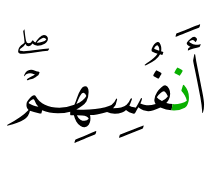 أَنفُسِهِمۡۖ